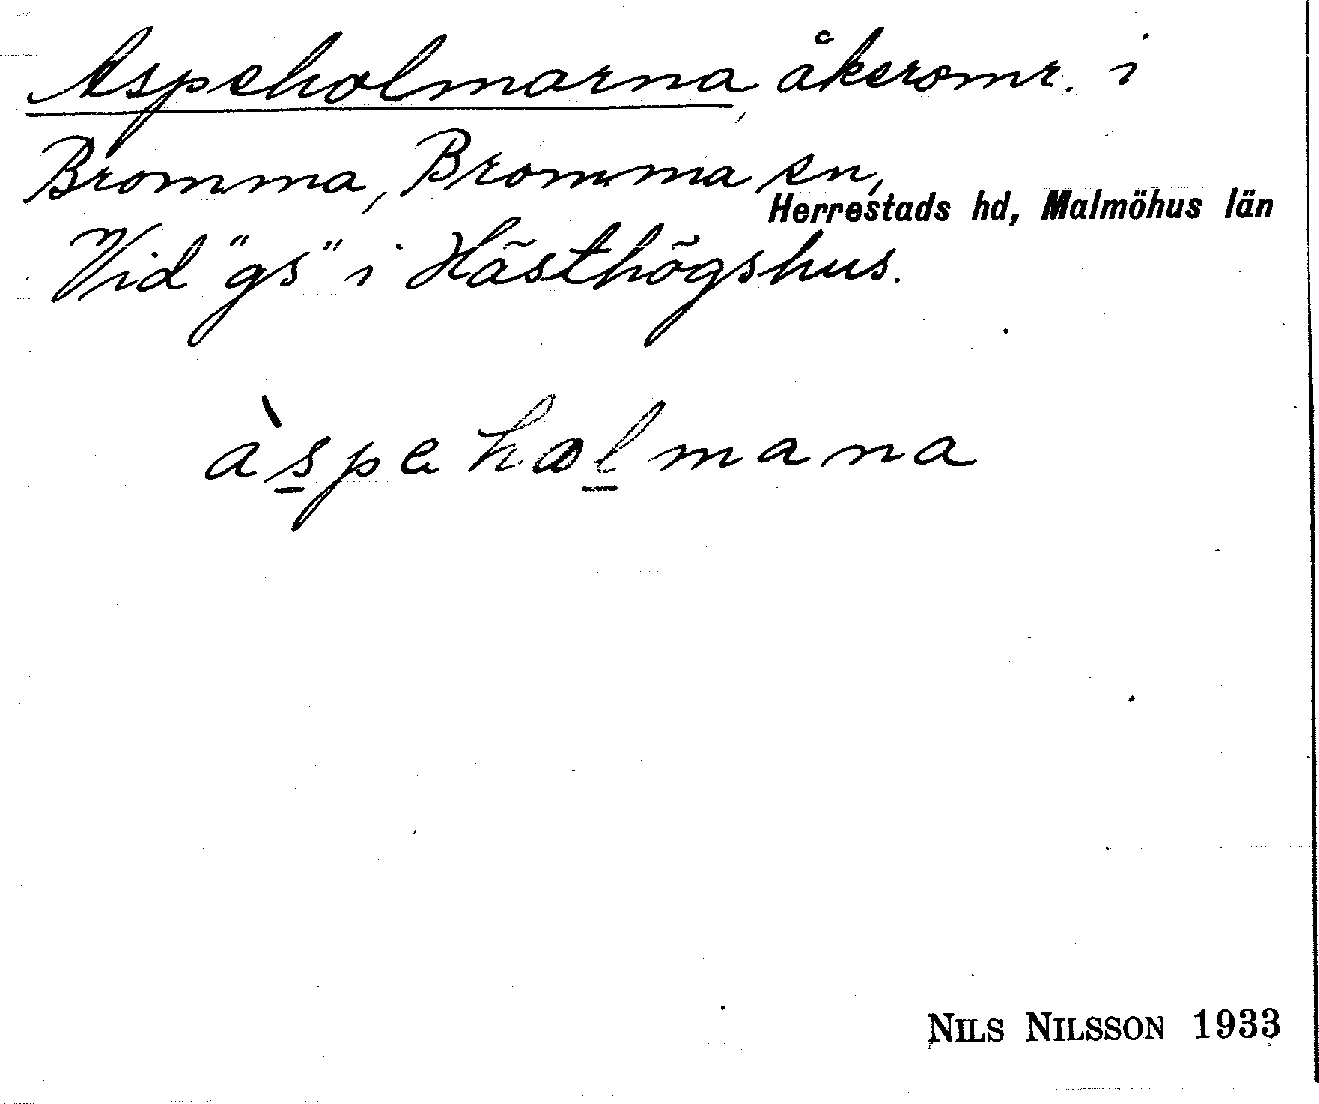 Aspeholmarna, åkeromr. i
Bromma, Bromma sn,
Herrestads hd, Malmöhus län
Vid "gs" i Hästhögshus.
àspehωlmana
NILS NILSSON 1933